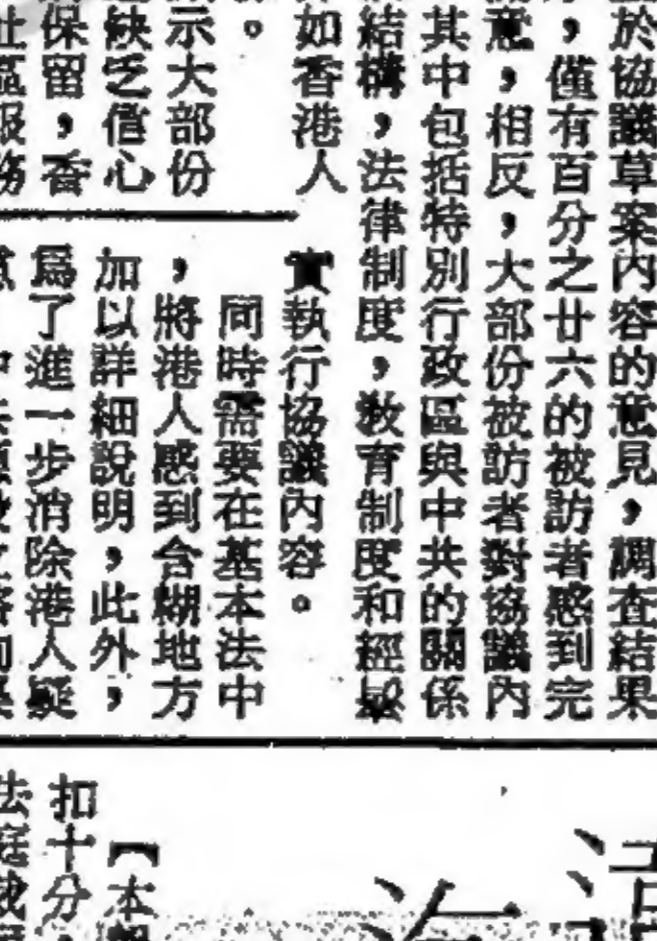 於協議草案內容的意見，調查結果
，僅有百分之廿六的被訪者感到完
意，相反，大部份被訪者對協議內
其中包括特別行政區與中共的關係
結構，法律制度，教育制度和經
如香港人
實執行協議內容。
同時需要在基本法中
，將港人感到含糊地方
加以詳細說明，此外，
為了進一步消除港人疑
。
示大部份
缺乏信心
保留，香
社區服務
【本
扣十分
法庭